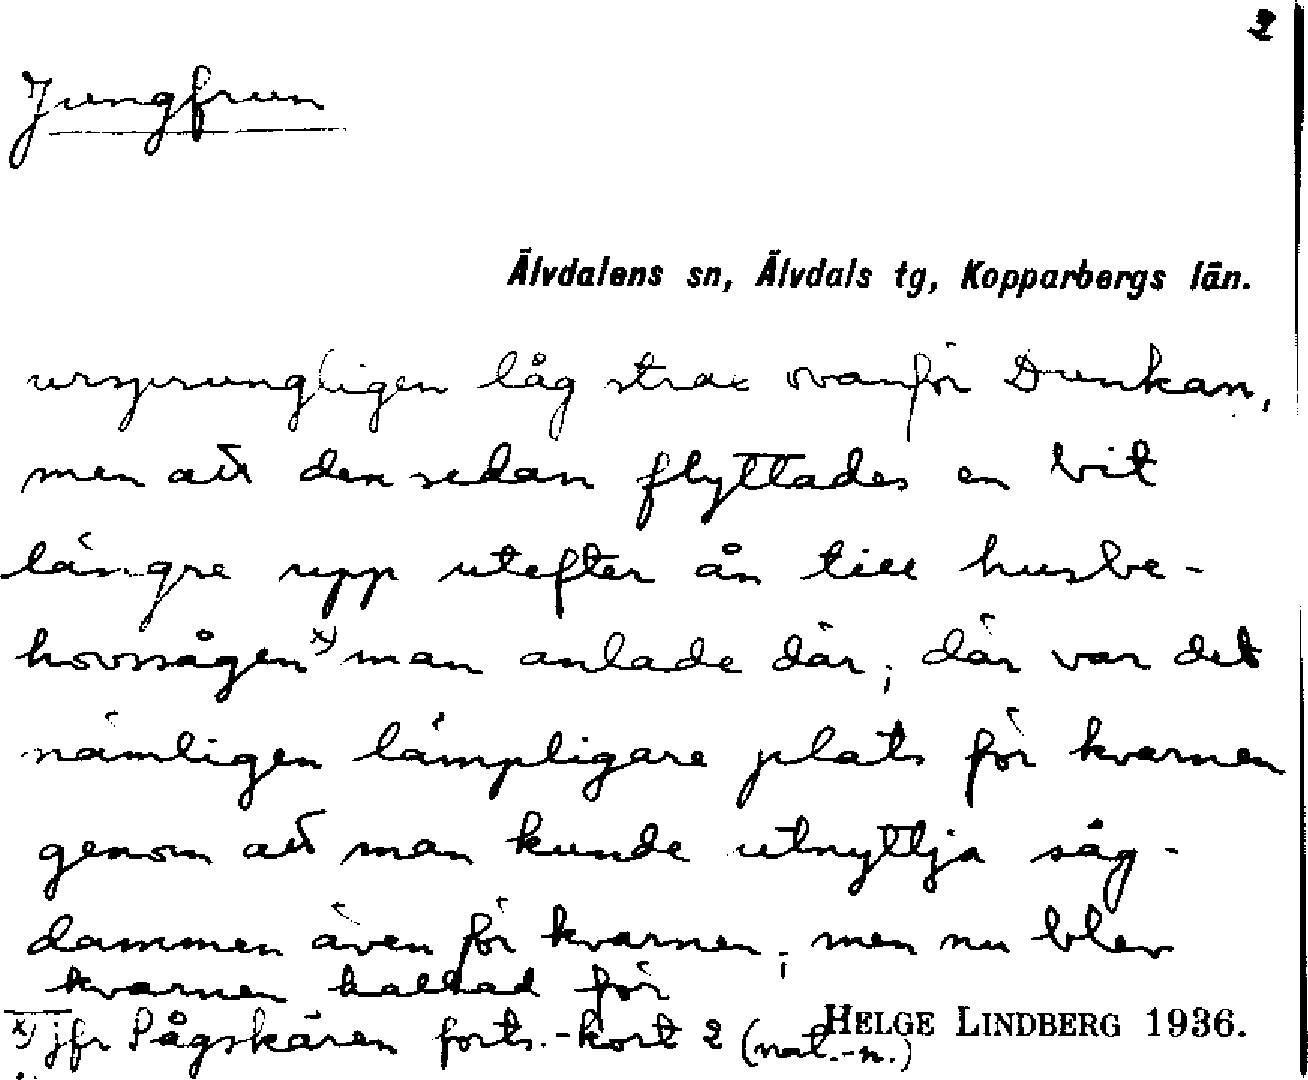 2
Jungfrun
Älvdalens sn, Älvdals tg, Kopparbergs län.
ursprungligen låg strax ovanför Dunkan,
men att den sedan flyttades en bit
längre upp utefter ån till husbe-
hovssågen x) man anlade där; där var det
nämligen lämpligare plats för kvarnen
genom att man kunde utnyttja såg-
dammen även för kvarnen; men nu blev
kvarnen kallad för
x) jfr Pågskären forts.-kort 2 (nat.-n.)
HELGE LINDBERG 1936.